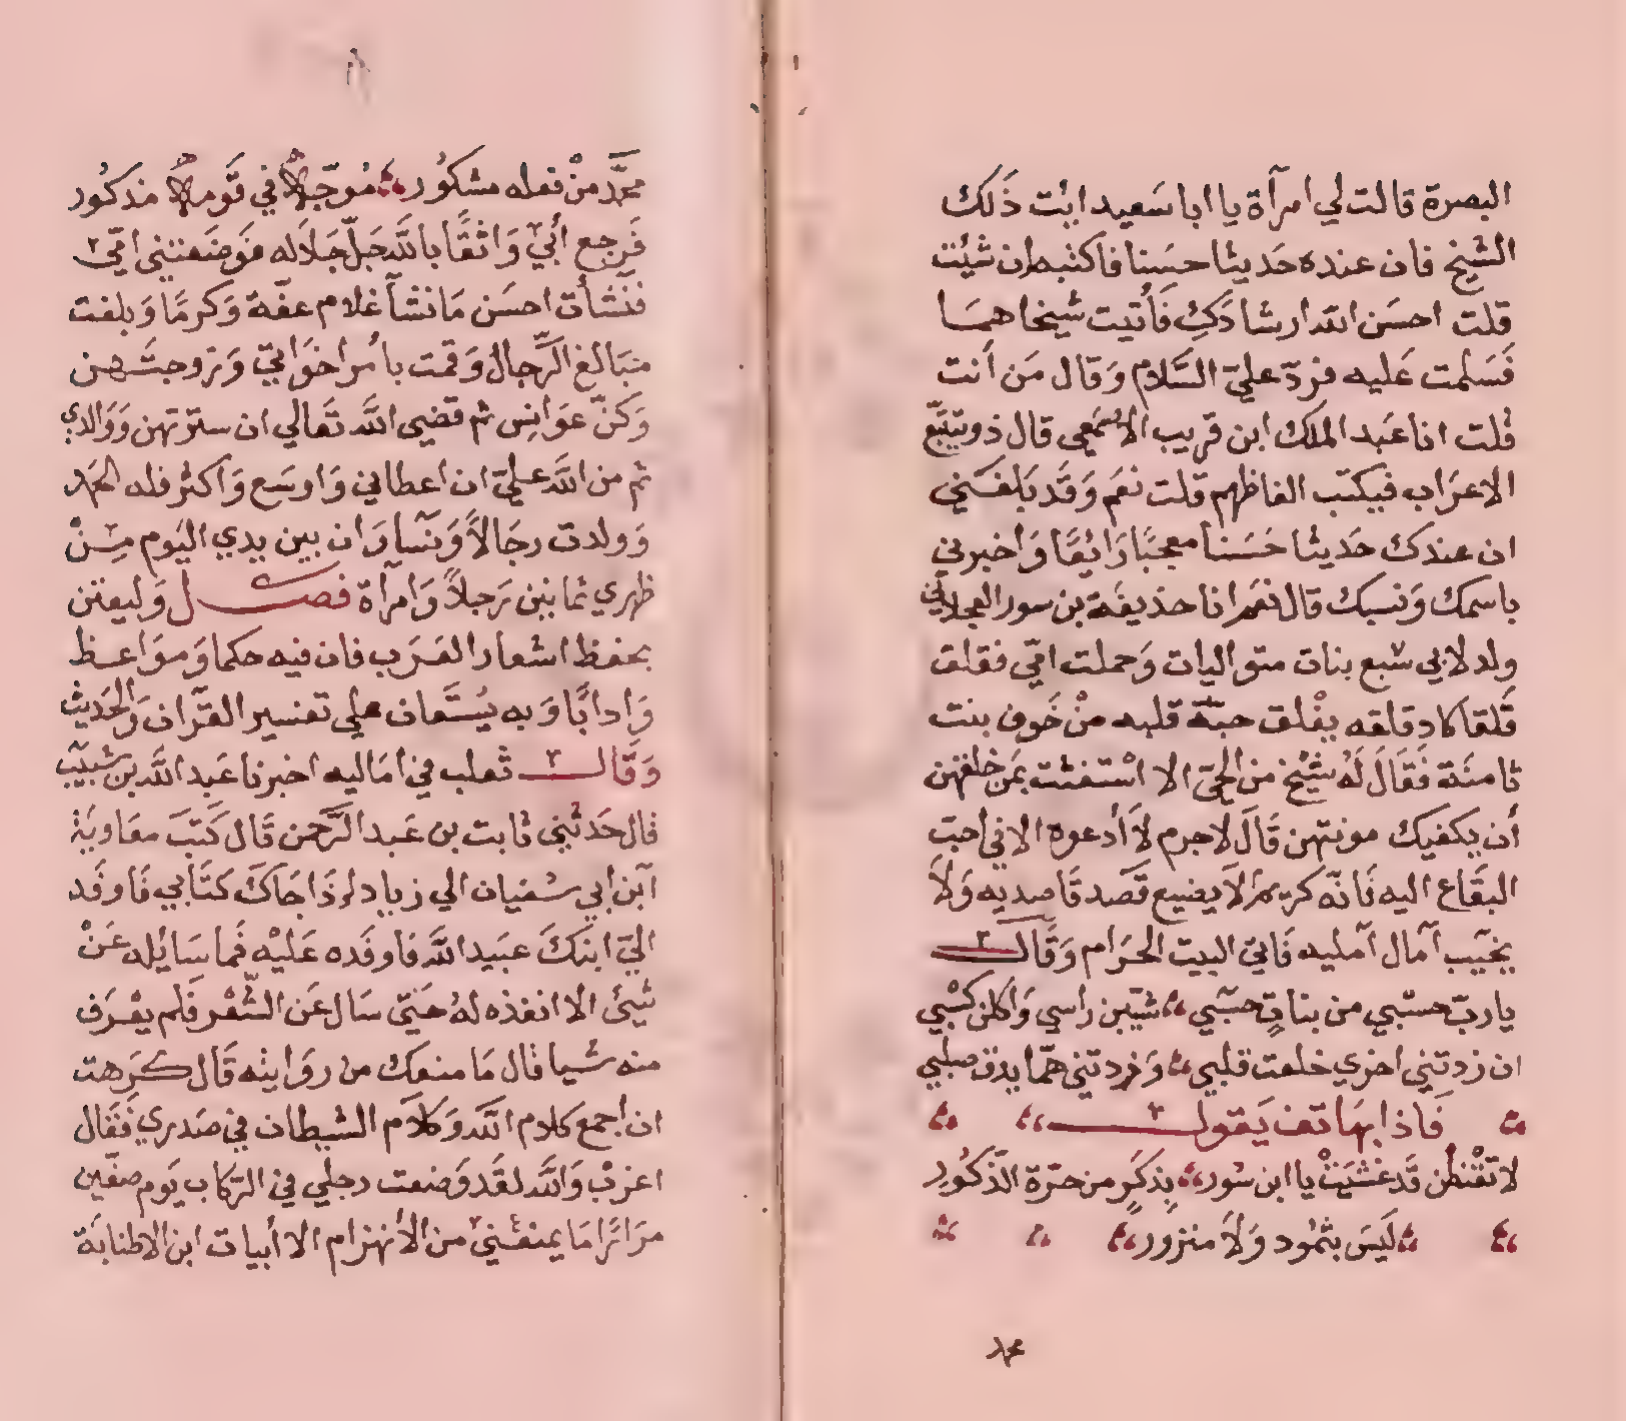 البصرة قالت لي امرآة يا ابا سَعيد ائت ذَلك
الشيخ فان عنده حَديثا حسَنا فاكتبه ان شئت
قلت احسَن الله ارشادَكِ فَأتيت شيخا همسا
فَسَلمت عَليه فردّ عليّ السَّلام وَقال مَن أنت
قُلت انا عَبد الملك ابن قريب الاصمعي قال ذو تتبّع
الاعرَاب فيكتب الفاظهم قلت نعَم وَقد بَلغَني
ان عندك حَديثا حَسَنا معجبًا رَائعًا وَاخبرني
باسمك وَنسبك قال نعَم انا حذيفَة بن سور العجلاني
ولد لابي سبع بنات متواليات وَحملت امّي فقلق
قَلقا كاد قلقه يفْلق حبّة قلبه منْ خَوف بنت
ثامنَة فَقَالَ لَهُ شيْخ من الحيّ الا اسْتغثت بمَن خلقهن
أن يكفيك مونتهن قَالَ لاجرم لاَ أدعوه الا في احبّ
البقَاع اليه فَانّه كريم لاَ يضيع قَصد قَاصديه وَلاَ
يخيّب آمال آمليه فَاتى البيت الحرَام وَقَال
يا ربّ حسْبي من بناتٍ حسْبي شيّبن رأسي وَاكلن كسْبي
ان زدتني اخري خلعت قلبي وَزدتني همّا يدق صلبي
فَاذا بهَاتف يَقول
لا تقْنطن قَد غشيَتْ يا ابن سُور بِذكَرٍ من خيرة الذّكُور
لَيسَ بثمُود وَلاَ منزور
محمد
محمَّد منْ فعله مشكُور مُوجّهًا في قَومه مذكُور
فَرجع أبي وَاثقًا بالله جَلّ جَلاَله فوَضعتني امّي
فنَشأت احسَن مَا نشأ غلام عفّة وَكرمًا وَبلغت
مبَالغ الرِّجال وَقمت بأمر اخوَاتي وَزوجتَهن
وَكنّ عوَانِس ثم قضي الله تَعالي ان سترتهن وَوَالدي
ثم من الله عليّ ان اعطاني وَاوسَع وَاكثر فله الحمد
وَولدت رجَالاً وَنسآ وَان بين يدي اليَوم مِنْ
ظهري ثمانين رَجلاً وَامرآة فصــل وَليعتن
بحفظ اشعار العَرَب فان فيه حكما وَموَاعظ
وَادابًا وَبه يُستَعان علي تفسير القرآن وَالحَديث
وَقَال ثعلب في امَاليه اخبرنا عَبد الله بن شبيب
قال حَدثني ثابت بن عَبد الرَّحمن قَال كَتبَ معَاوية
ابن ابي سُفيان الي زياد اذَا جَاكَ كتَابي فَاوفَد
اليّ ابنَكَ عبَيد الله فَاوفَده عَليْه فَما سَايُله عَنْ
شيئ الا انفذه لهُ حَتيّ سَال عَن الشِّعْر فَلم يعْرَف
منه شيا قال مَا منعك من روَايته قَال كَرَهت
ان أجمع كلام الله وَكلاَم الشيطان في صَدري فَقَال
اعزبْ وَالله لقَد وَضعت رجلي في الرّكاب يَوم صفّين
مرَارًا مَا يمنعني من الأنهزام الا أبيات ابن الاطنابَة